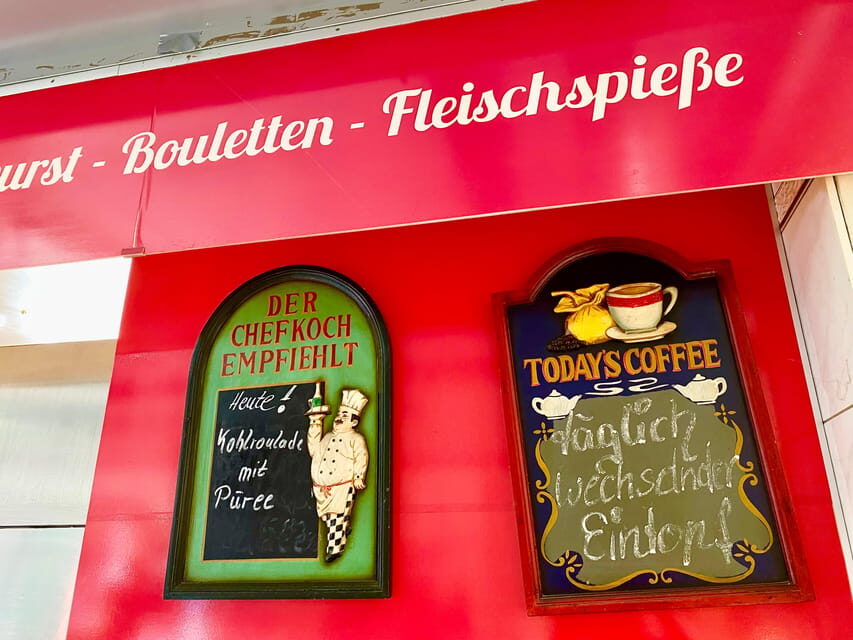 urst - Bouletten - Fleischspieße
DER
CHEFKOCH
EMPFIEHLT
Heute!
Kohlroulade
mit
Püree
TODAY'S COFFEE
täglich
wechselnder
Eintopf